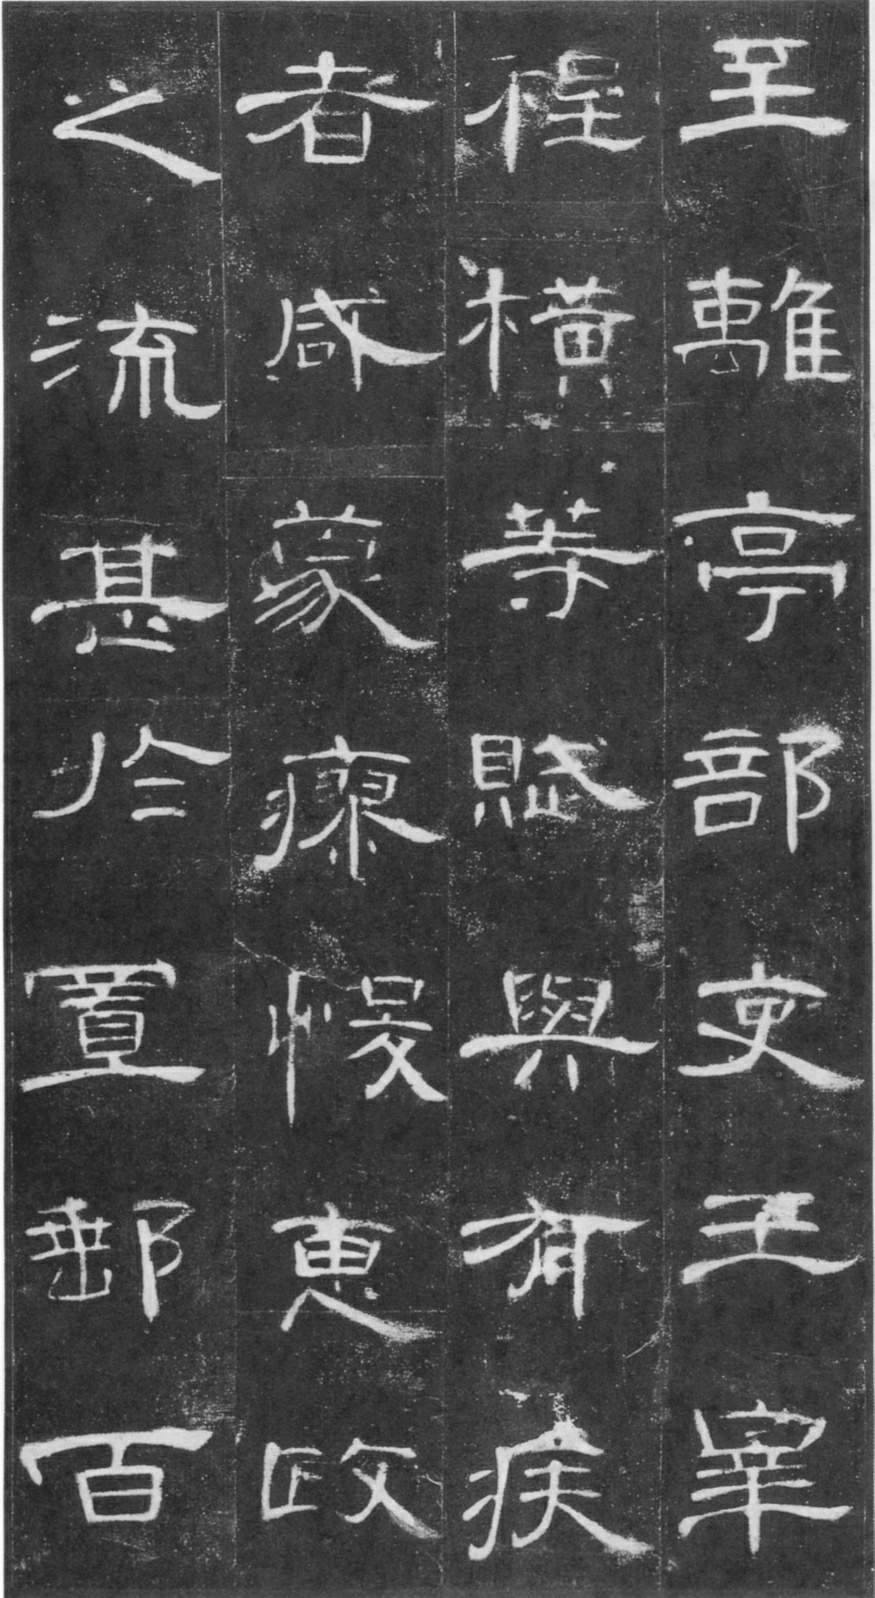 至離亭部吏王睾
程橫等賦與有疾
者咸蒙瘳悛惠政
之流甚於置郵百